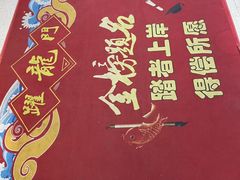 躍龍門
金榜题名
踏者上岸
得偿所愿